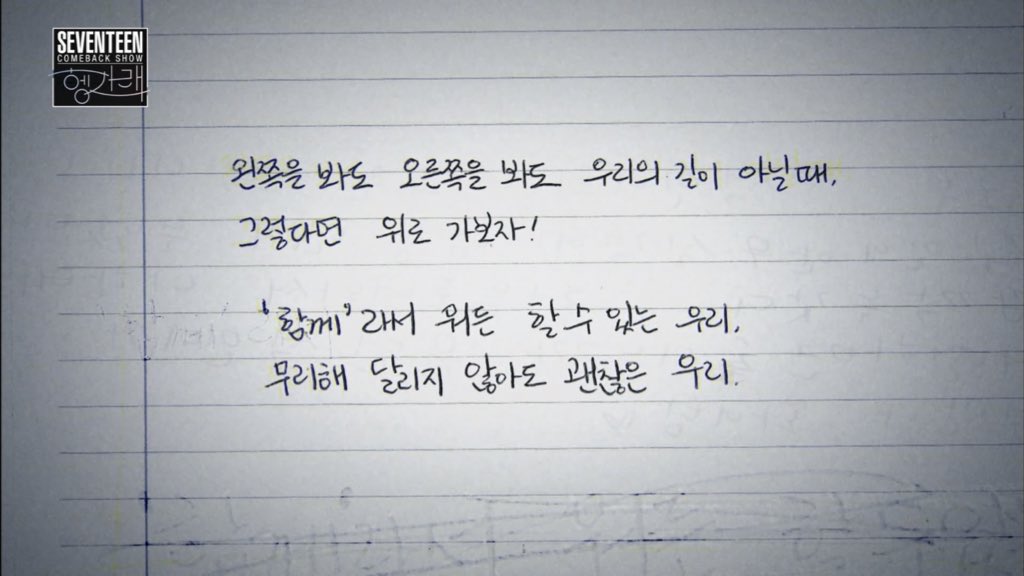 SEVENTEEN
COMEBACK SHOW
헹가래
왼쪽을 봐도 오른쪽을 봐도 우리의 길이 아닐 때,
그렇다면 위로 가보자!
'함께'라서 뭐든 할 수 있는 우리.
무리해 달리지 않아도 괜찮은 우리.